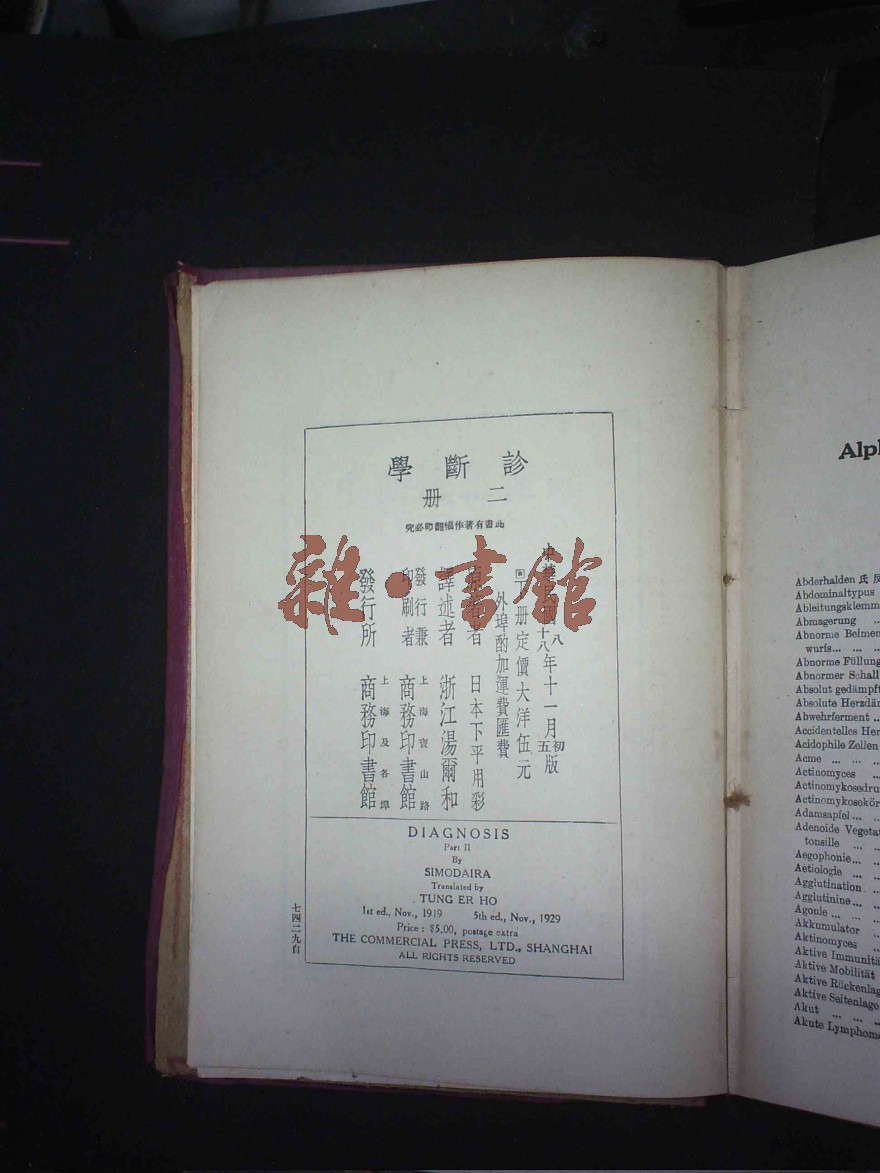 診斷學
二冊
此書有著作權翻印必究
中華民國八年十一月初版
十八年十一月五版
下冊定價大洋伍元
外埠酌加運費匯費
原著者 日本下平用彩
譯述者 浙江湯爾和
發行兼印刷者 上海寶山路 商務印書館
發行所 上海及各埠 商務印書館
DIAGNOSIS
Part II
By
SIMODAIRA
Translated by
TUNG ER HO
1st ed., Nov., 1919 5th ed., Nov., 1929
Price : $5.00, postage extra
THE COMMERCIAL PRESS, LTD., SHANGHAI
ALL RIGHTS RESERVED
七四二九自
雜·書館
Alph
Abderhalden 氏反
Abdominaltypus
Ableitungsklemm
Abmagerung ...
Abnorme Beimen
wurfs... ... ...
Abnorme Füllung
Abnormer Schall
Absolut gedämpft
Absolute Herzdäm
Abwehrferment ...
Accidentelles Her
Acidophile Zellen
Acme ... ... ...
Actinomyces ...
Actinomykosedru
Actinomykosekör
Adamsapfel... ...
Adenoide Vegetat
tonsille ... ...
Aegophonie... ...
Aetiologie ... ...
Agglutination ...
Agglutinine... ...
Agonie ... ... ...
Akkumulator ...
Aktinomyces ...
Aktive Immunitä
Aktive Mobilität
Aktive Rückenlag
Aktive Seitenlage
Akut ... ... ...
Akute Lymphome